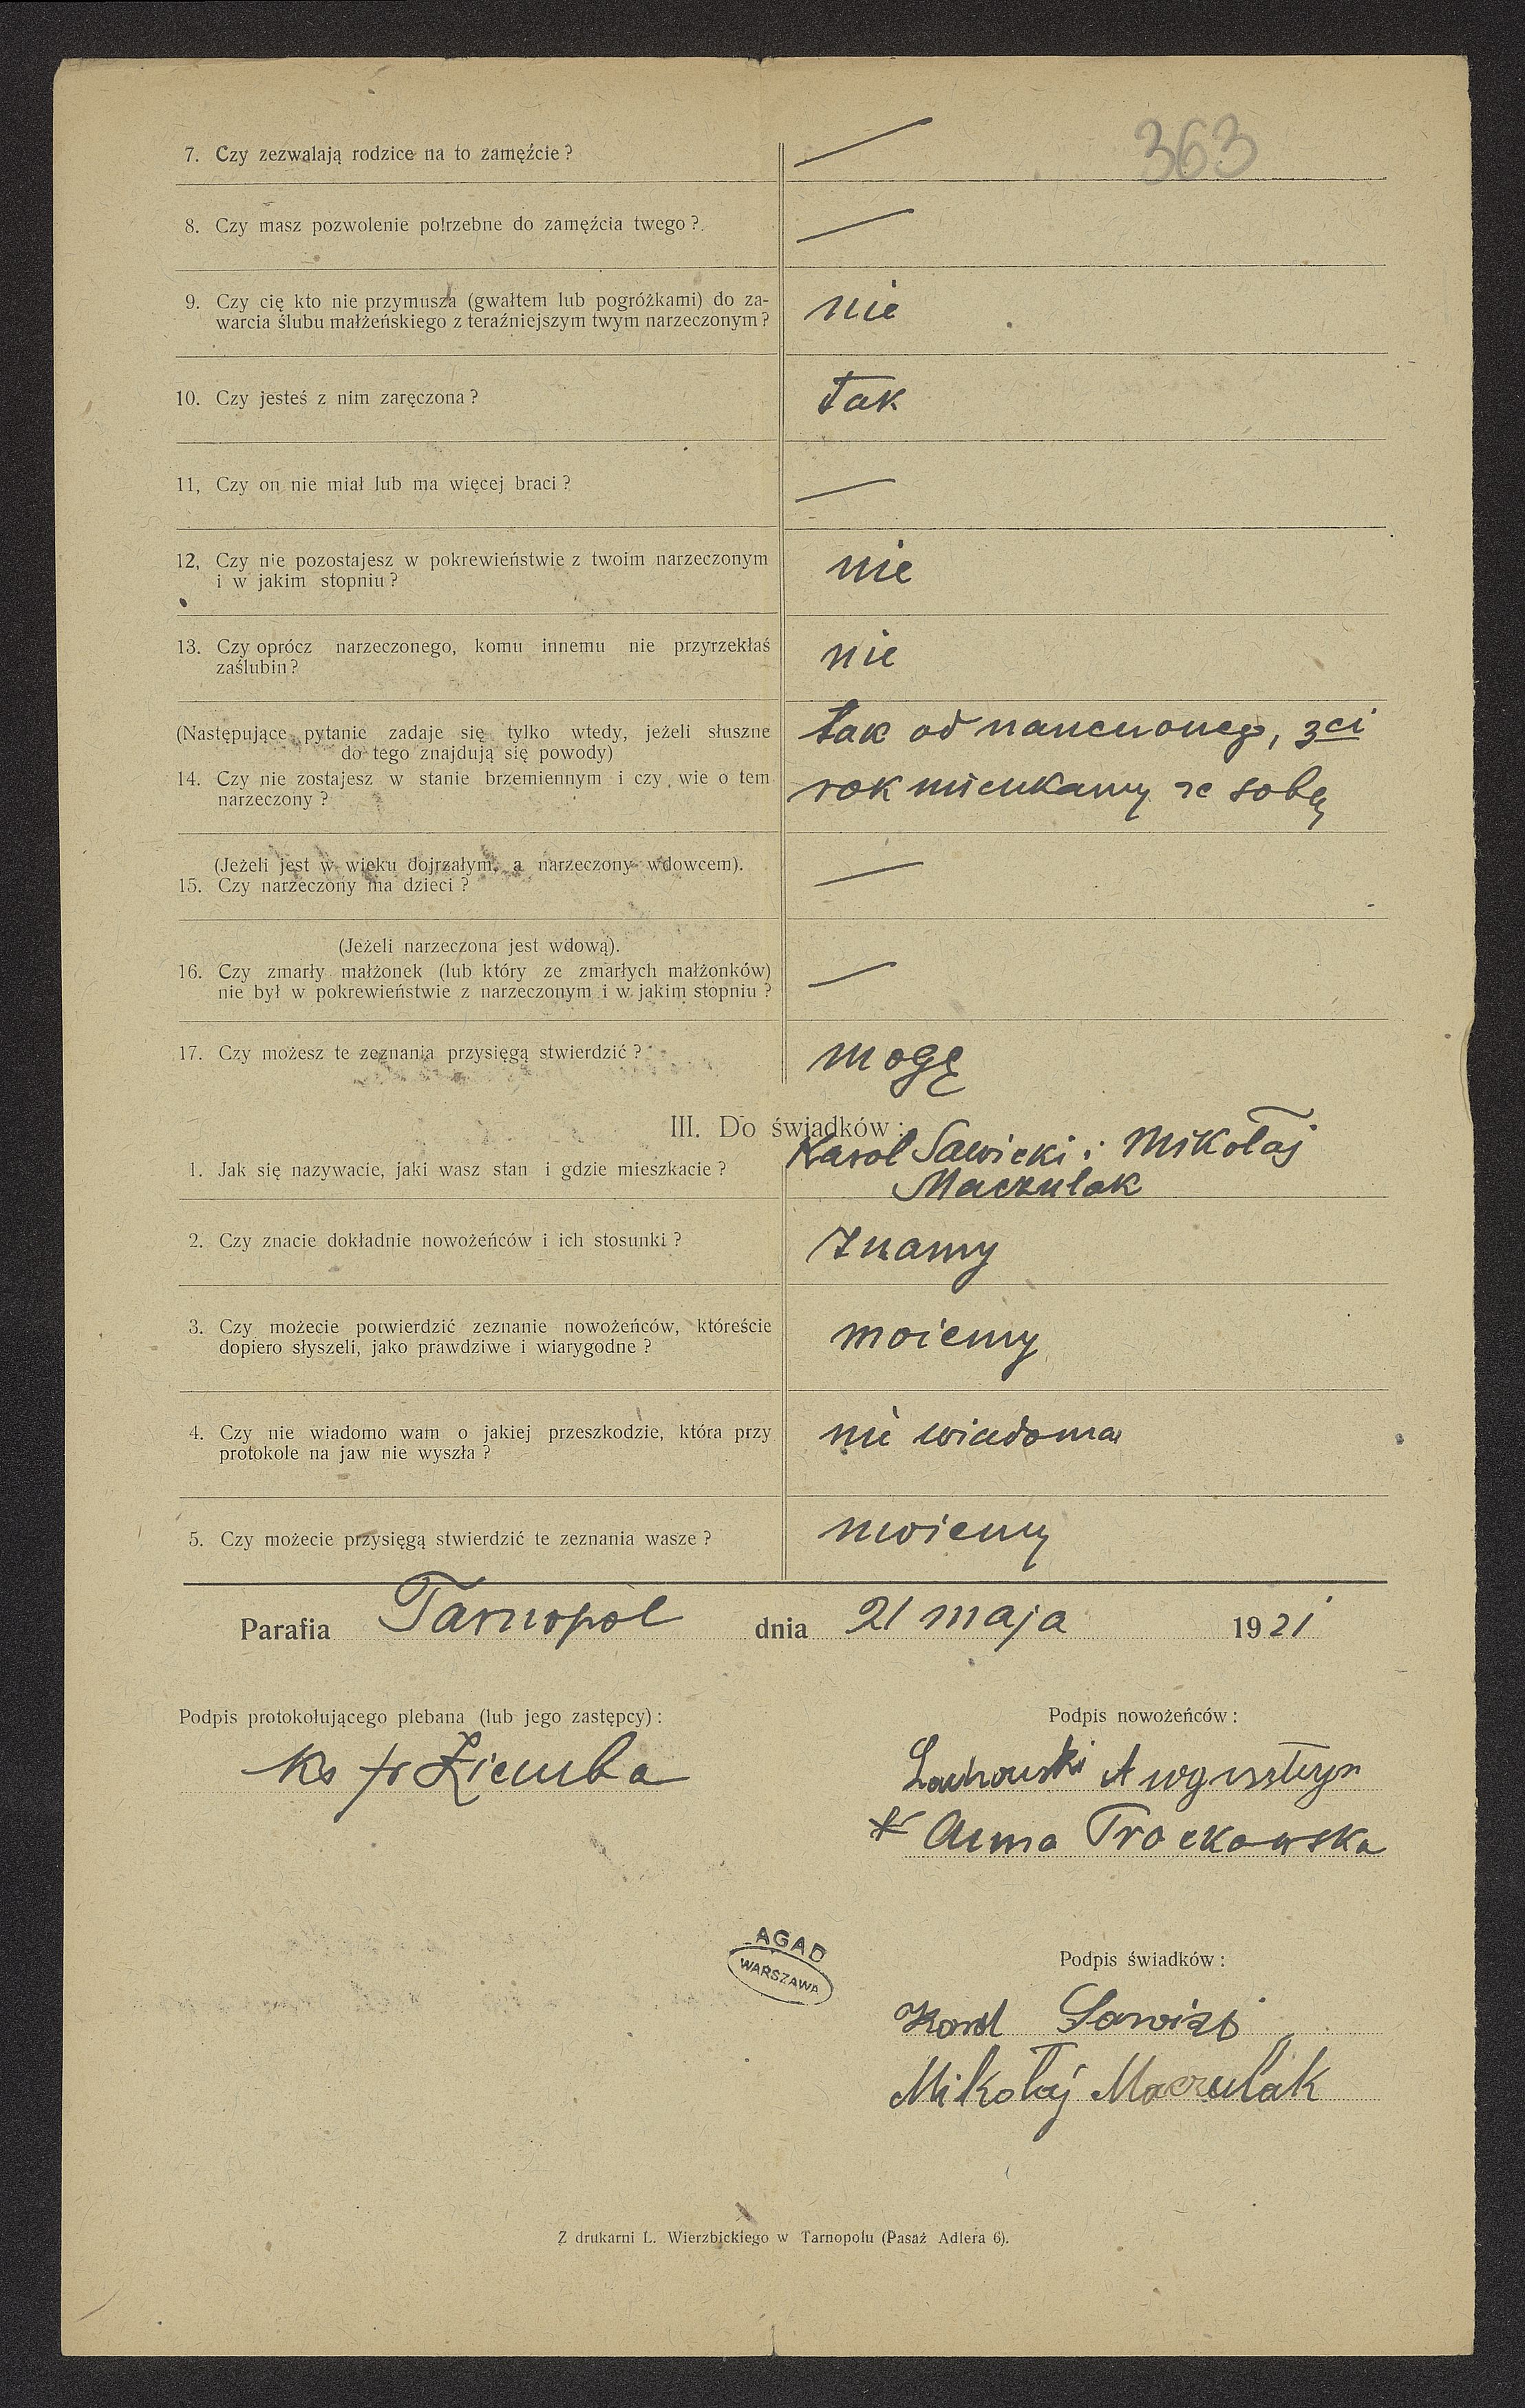 363
7. Czy zezwalają rodzice na to zamęźcie ?
8. Czy masz pozwolenie potrzebne do zamęźcia twego ?
9. Czy cię kto nie przymusza (gwałtem lub pogróżkami) do za-
warcia ślubu małżeńskiego z teraźniejszym twym narzeczonym ?
nie
10. Czy jesteś z nim zaręczona ?
tak
11, Czy on nie miał lub ma więcej braci ?
12, Czy nie pozostajesz w pokrewieństwie z twoim narzeczonym
i w jakim stopniu ?
nie
13. Czy oprócz narzeczonego, komu innemu nie przyrzekłaś
zaślubin ?
nie
(Następujące pytanie zadaje się tylko wtedy, jeżeli słuszne
do tego znajdują się powody)
14. Czy nie zostajesz w stanie brzemiennym i czy wie o tem
narzeczony ?
tak od narzeczonego, 3ci
rok mieszkamy ze sobą
(Jeżeli jest w wieku dojrzałym, a narzeczony wdowcem).
15. Czy narzeczony ma dzieci ?
(Jeżeli narzeczona jest wdową).
16. Czy zmarły małżonek (lub który ze zmarłych małżonków)
nie był w pokrewieństwie z narzeczonym i w jakim stopniu ?
17. Czy możesz te zeznania przysięgą stwierdzić ?
mogę
III. Do świadków :
1. Jak się nazywacie, jaki wasz stan i gdzie mieszkacie ?
Karol Sawicki i Mikołaj
Maczulak
2. Czy znacie dokładnie nowożeńców i ich stosunki ?
Znamy
3. Czy możecie potwierdzić zeznanie nowożeńców, któreście
dopiero słyszeli, jako prawdziwe i wiarygodne ?
możemy
4. Czy nie wiadomo wam o jakiej przeszkodzie, która przy
protokole na jaw nie wyszła ?
nie wiadomo
5. Czy możecie przysięgą stwierdzić te zeznania wasze ?
możemy
Parafia Tarnopol dnia 21 maja 1921
Podpis protokołującego plebana (lub jego zastępcy) :
Ks fr Ziemba
Podpis nowożeńców :
Augustyn
Anna Trockowska
AGAD
WARSZAWA
Podpis świadków :
Karol
Mikołaj Maczulak
Z drukarni L. Wierzbickiego w Tarnopolu (Pasaż Adlera 6).